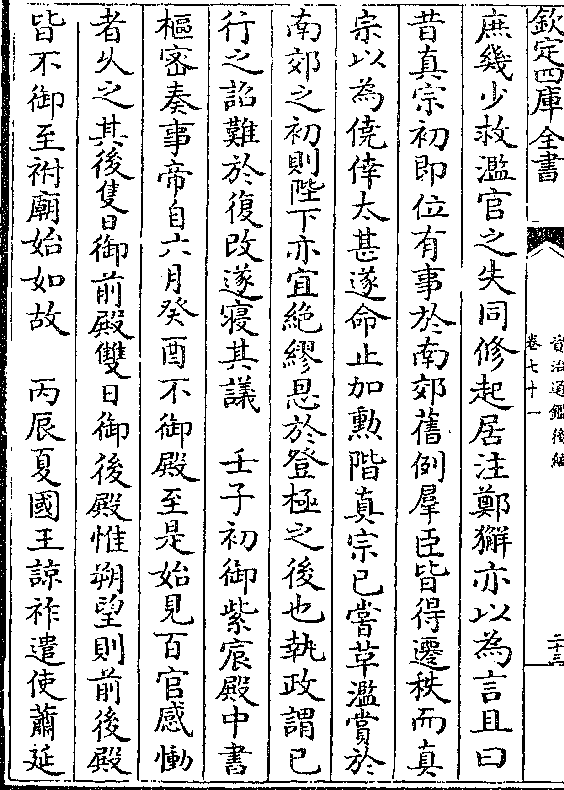 欽定四庫全書
資治通鑑後編
卷七十一
二十三
庶幾少救濫官之失同修起居注鄭獬亦以為言且曰
昔真宗初即位有事於南郊舊例羣臣皆得遷秩而真
宗以為僥倖太甚遂命止加勲階真宗已嘗革濫賞於
南郊之初則陛下亦宜絶繆恩於登極之後也執政謂已
行之詔難於復改遂寝其議　壬子初御紫宸殿中書
樞密奏事帝自六月癸酉不御殿至是始見百官感慟
者久之其後隻日御前殿雙日御後殿惟朔望則前後殿
皆不御至祔廟始如故　丙辰夏國王諒祚遣使蕭延